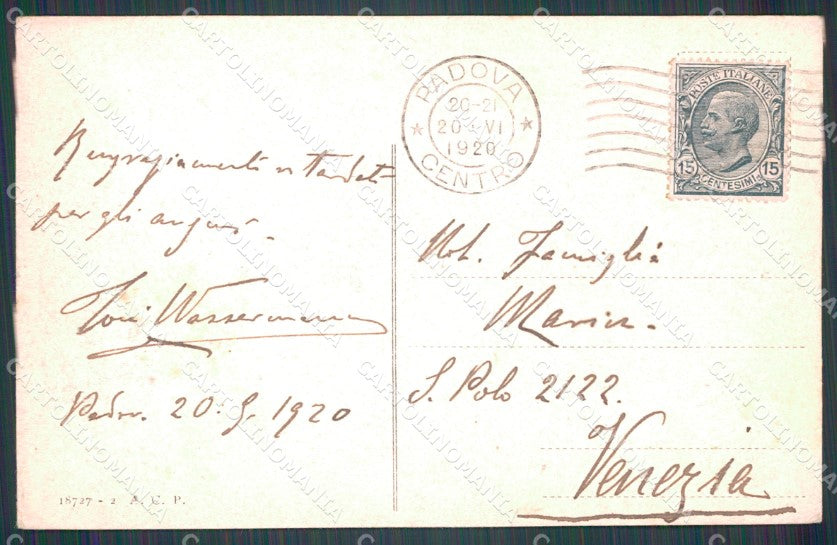 Ringraziamenti
per gli auguri.
Wassermann
Padov. 20. G. 1920
18727 - 2 A. C. P.
PADOVA
20-21
20 VI
1920
CENTRO
POSTE ITALIANE
15 CENTESIMI 15
Famiglia
Marin.
S. Polo 2122.
Venezia
CARTOLINOMANIA